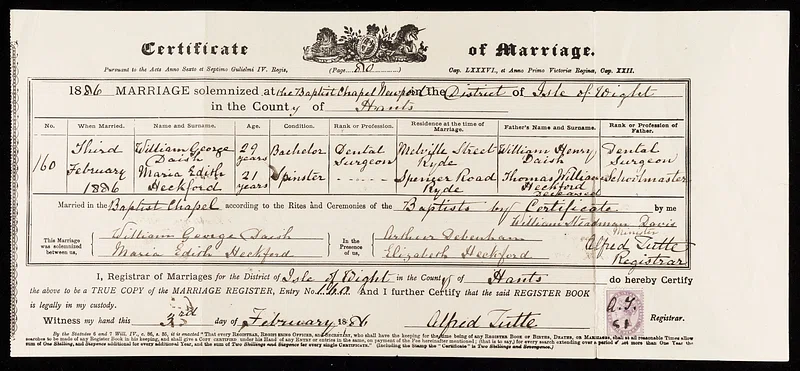 Certificate of Marriage.
Pursuant to the Acts Anno Sexto et Septimo Gulielmi IV. Regis, (Page 80) Cap. LXXXVI., et Anno Primo Victoriæ Reginæ, Cap. XXII.
1886 MARRIAGE solemnized at the Baptist Chapel Newport in the District of Isle of Wight
in the County of Hants
No. When Married. Name and Surname. Age. Condition. Rank or Profession. Residence at the time of Marriage. Father's Name and Surname. Rank or Profession of Father.
160 Third February 1886
William George Daish 29 years Bachelor Dental Surgeon Melville Street Ryde William Henry Daish Dental Surgeon
Maria Edith Heckford 21 years Spinster Spencer Road Ryde Thomas William Heckford deceased Schoolmaster
Married in the Baptist Chapel according to the Rites and Ceremonies of the Baptists by Certificate by me
William Steadman Davis
Minister
This Marriage was solemnized between us, William George Daish In the Presence of us, Arthur Debenham Alfred Tutte
Maria Edith Heckford Elizabeth Heckford Registrar
I, Registrar of Marriages for the District of Isle of Wight in the County of Hants do hereby Certify
the above to be a TRUE COPY of the MARRIAGE REGISTER, Entry No. 160 And I further Certify that the said REGISTER BOOK
is legally in my custody.
A.T.
Witness my hand this 3rd day of February 1886 Alfred Tutte Registrar.
By the Statutes 6 and 7 Will. IV., c. 86, s. 35, it is enacted "That every REGISTRAR, REGISTERING OFFICER, and SECRETARY, who shall have the keeping for the time being of any REGISTER BOOK OF BIRTHS, DEATHS, OR MARRIAGES, shall at all reasonable Times allow
searches to be made of any Register Book in his keeping, and shall give a COPY certified under his Hand of any ENTRY or Entries in the same, on payment of the Fee hereinafter mentioned; (that is to say,) for every search extending over a period of not more than One Year the
sum of One Shilling, and Sixpence additional for every additional Year, and the Sum of Two Shillings and Sixpence for every single CERTIFICATE." (Including the Stamp the "Certificate" is Two Shillings and Sevenpence.)